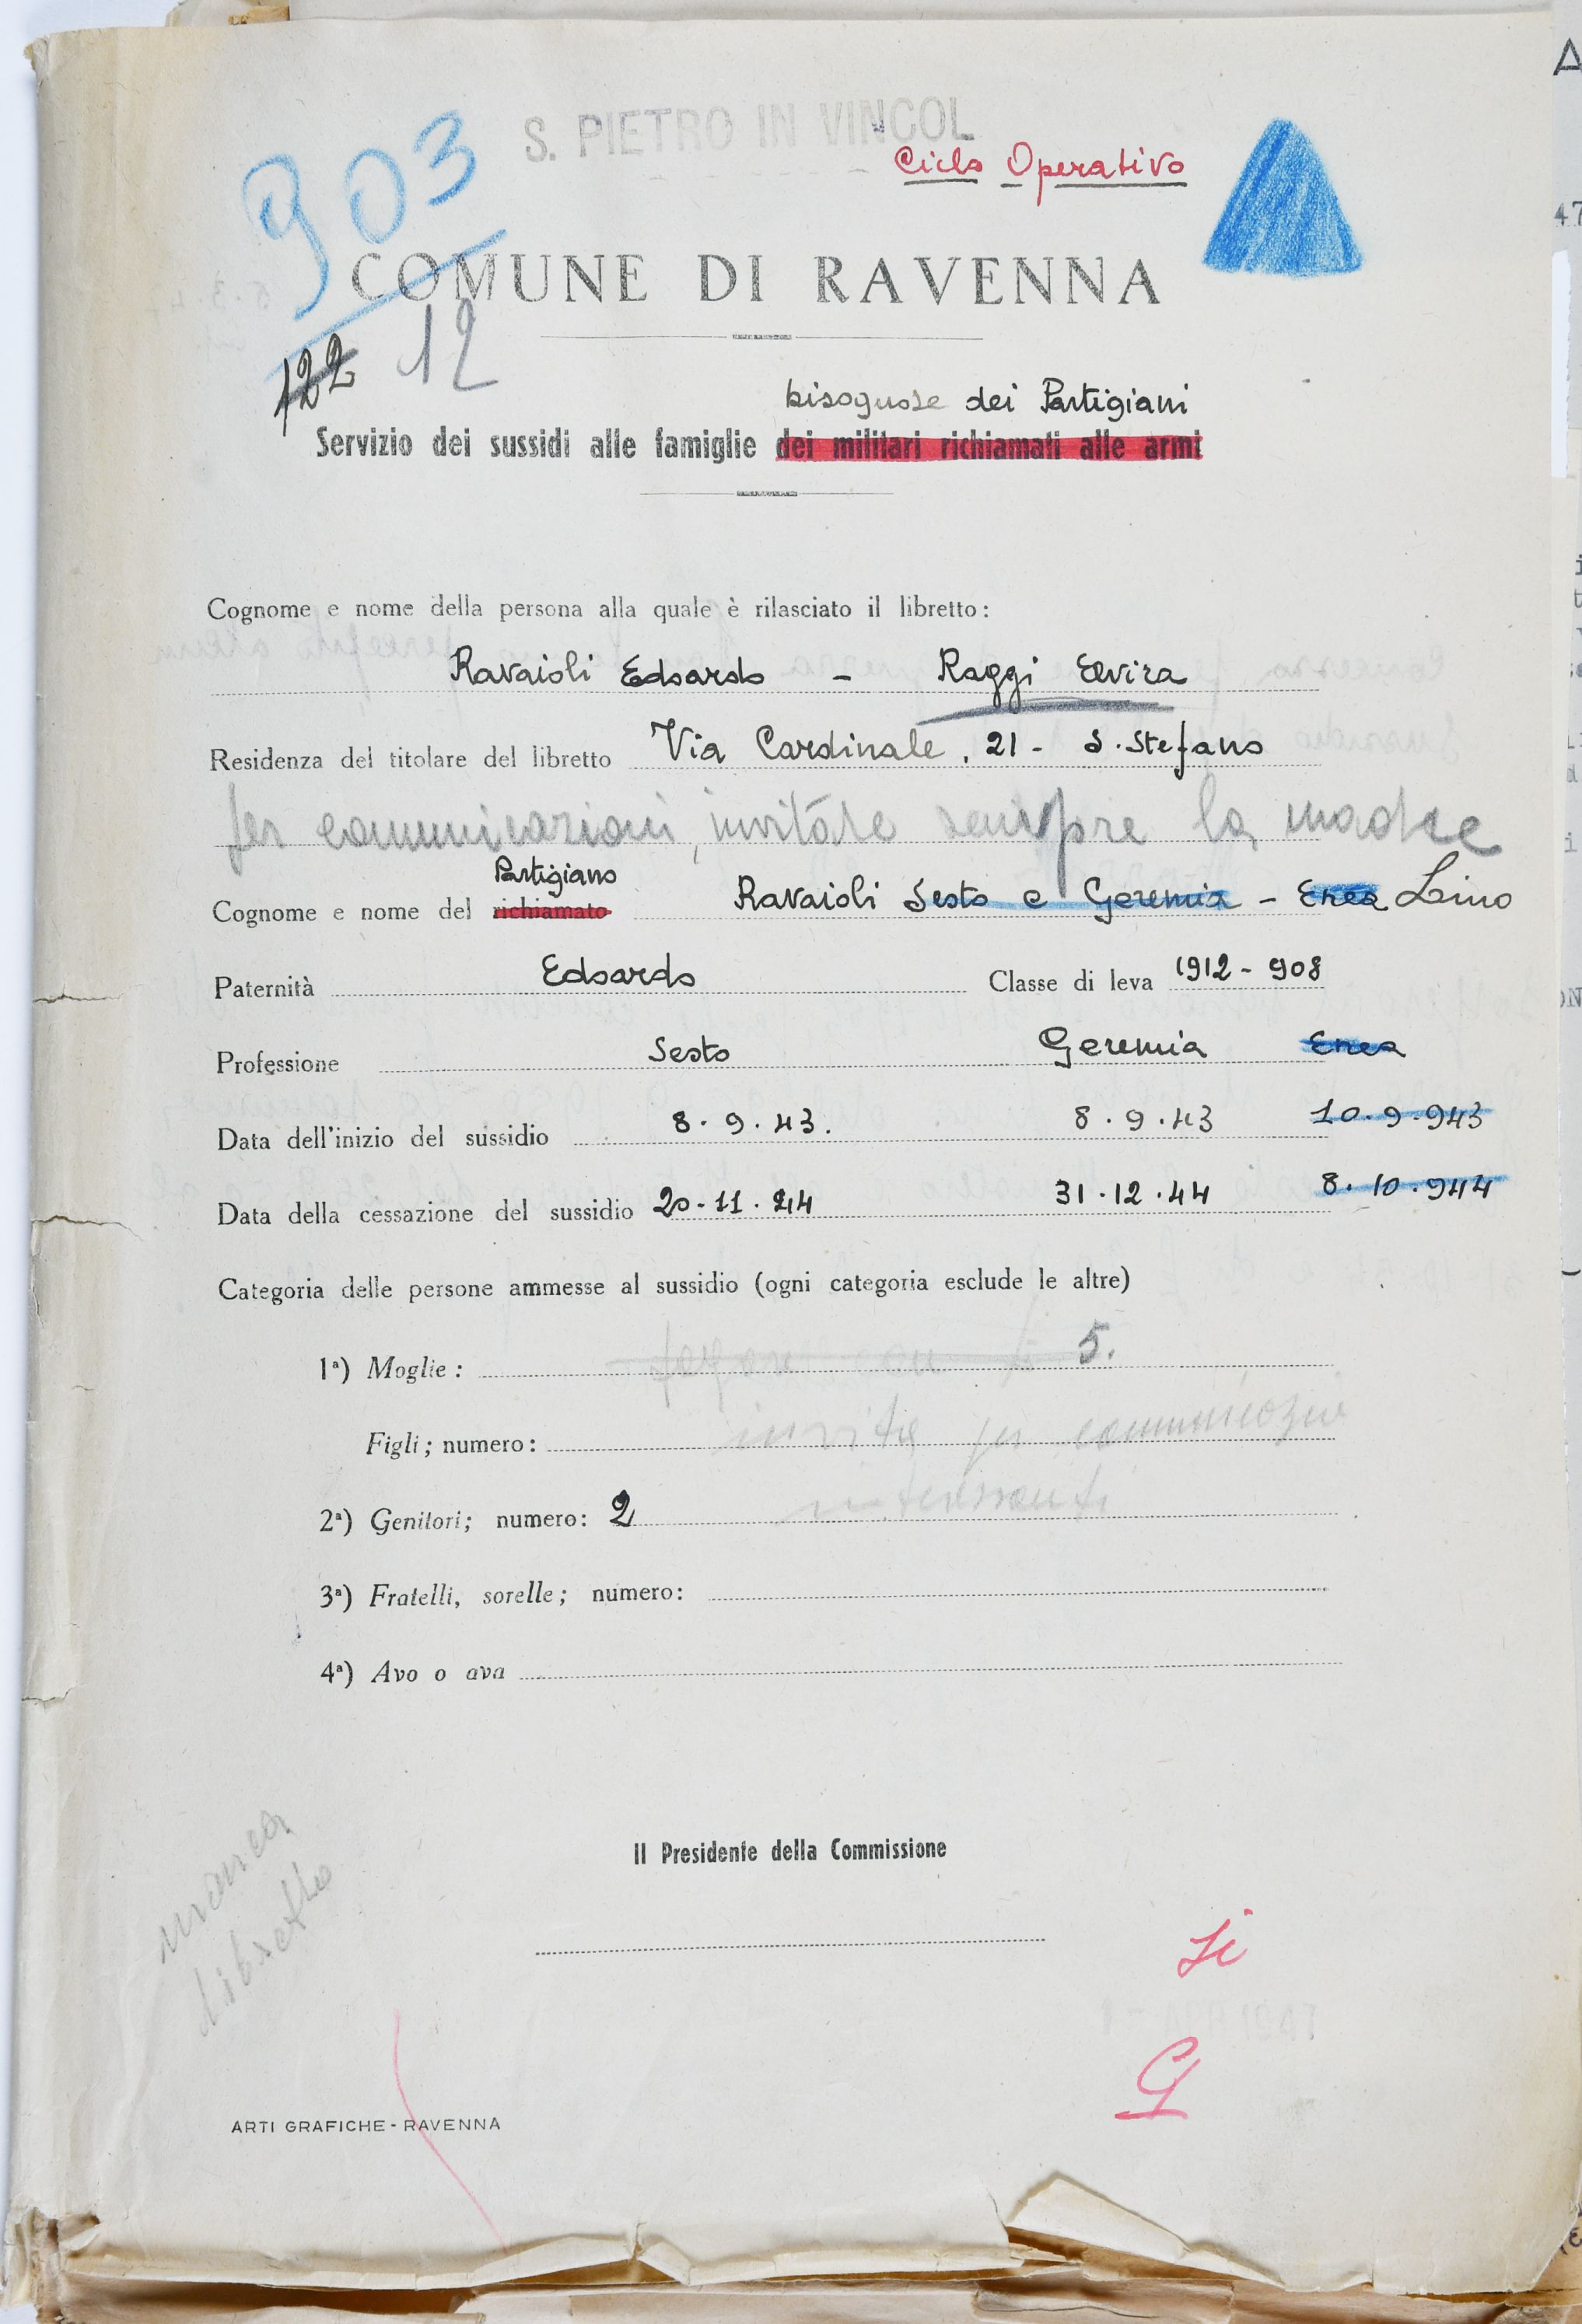 S. PIETRO IN VINCOL
903
Ciclo Operativo
COMUNE DI RAVENNA
122 12
bisognose dei Partigiani
Servizio dei sussidi alle famiglie dei militari richiamati alle armi
Cognome e nome della persona alla quale è rilasciato il libretto:
Ravaioli Edoardo - Raggi Elvira
Residenza del titolare del libretto Via Cardinale, 21 - S. Stefano
per comunicazioni, invitare sempre la madre
Partigiano
Cognome e nome del richiamato Ravaioli Sesto e Geremia - Enea Lino
Paternità Edoardo Classe di leva 1912 - 908
Professione Sesto Geremia Enea
Data dell'inizio del sussidio 8. 9. 43. 8. 9. 43 10. 9. 943
Data della cessazione del sussidio 20-11. 44 31. 12. 44 8. 10. 944
Categoria delle persone ammesse al sussidio (ogni categoria esclude le altre)
1ª) Moglie: 5.
Figli; numero:
2ª) Genitori; numero: 2
3ª) Fratelli, sorelle; numero:
4ª) Avo o ava
manca
libretto
Il Presidente della Commissione
si
G
ARTI GRAFICHE - RAVENNA